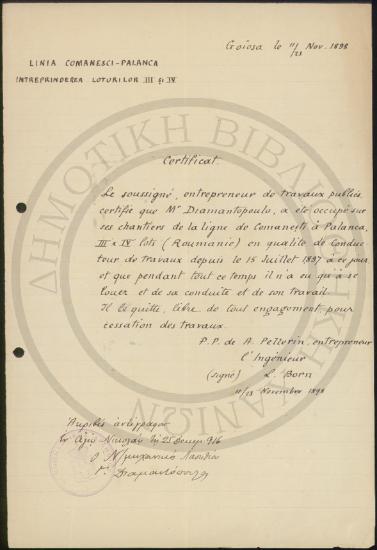 Goiosa le 11/23 Nov. 1898
LINIA COMANESCI-PALANCA
INTREPRINDEREA LOTURILOR III și IV
Certificat
Le soussigné, entrepreneur de travaux publics
certifie que Mr Diamantopoulo, a été occupé sur
ses chantiers de la ligne de Comanesti à Palanca,
III & IV Lots (Roumanie) en qualité de Conduc
teur de travaux depuis le 15 Juillet 1897 à ce jour
et que pendant tout ce temps il n'a eu qu'à se
louer et de sa conduite et de son travail.
Il le quitte, libre de tout engagement, pour
cessation des travaux.
P.P. de A. Pellerin, entrepreneur
l'Ingénieur
(signé) L. Born
11/23 Novembre 1898
Ακριβές αντίγραφον
Εν Αγίω Νικολάω τη 25 Δεκεμ. 916
Ο Νομομηχανικός Λασιθίου
Διαμαντόπουλος
ΔΗΜΟΤΙΚΗ ΒΙΒΛΙΟΘΗΚΗ ΧΑΝΙΩΝ